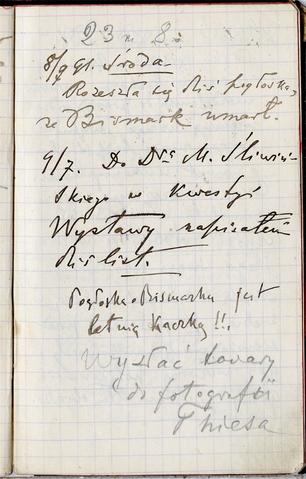 23 n 8.
8/7 91. Środa.
Rozeszła się dziś pogłoska,
że Bismark umarł.
9/7. Do Dra M. Śliwiń-
skiego w kwestyi
Wystawy napisałem
dziś list.
Pogłoska o Bismarku jest
letnią kaczką!!.
Wysłać towary
do fotografii
Thiesa